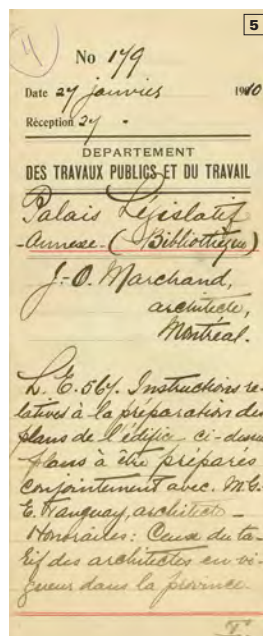 5
4
No 179
Date 27 janvier 1910
Réception 27 "
DEPARTEMENT
DES TRAVAUX PUBLICS ET DU TRAVAIL
Palais Législatif
-Annexe-(Bibliothèque)
J.-O. Marchand,
architecte,
Montréal.
L. E. 567. Instructions re-
latives à la préparation des
plans de l'édifice ci-dessus
plans à être préparés
conjointement avec M. G.
E. Tanguay, architecte -
Honoraires: Ceux du ta-
rif des architectes en vi-
gueur dans la province